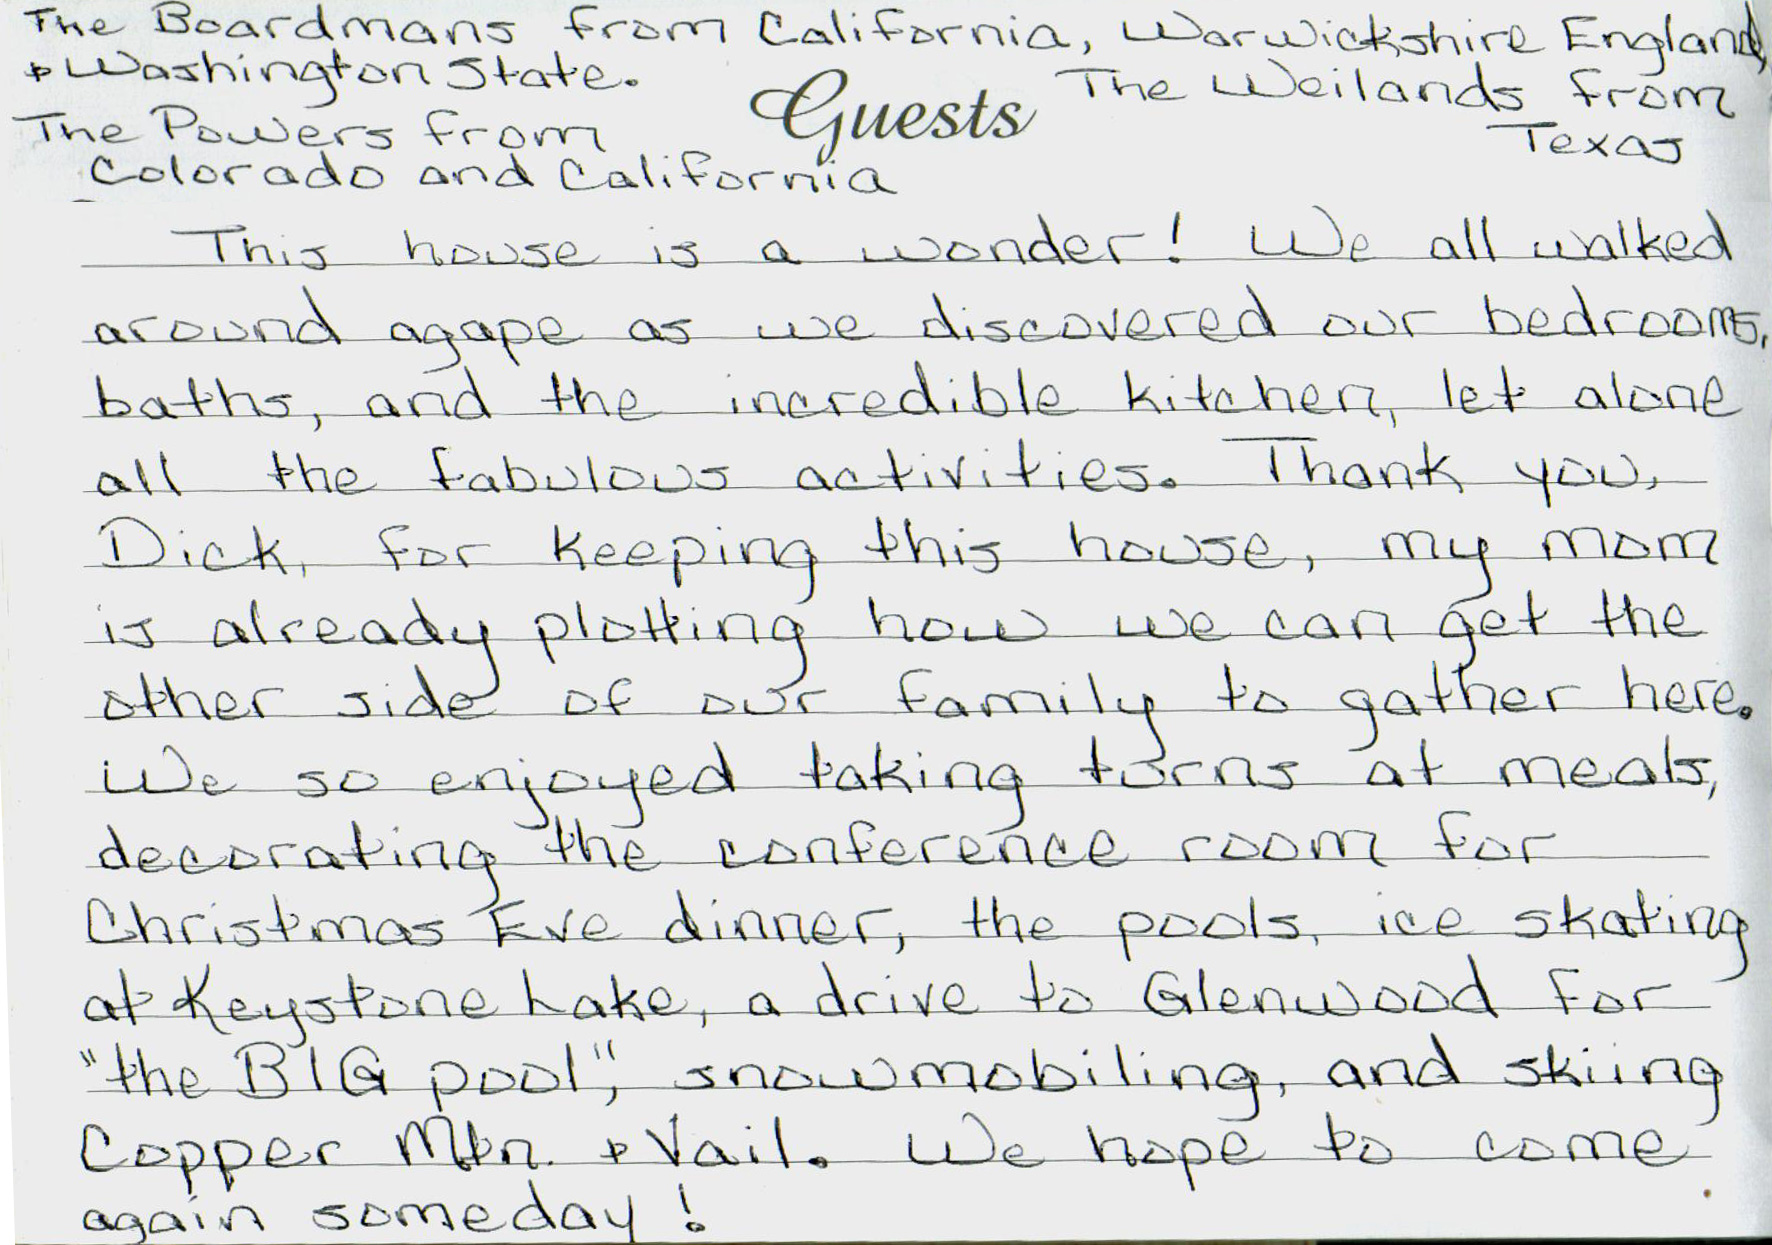 The Boardmans from California, Warwickshire England,
+ Washington State.
The Weilands from
Texas
Guests
The Powers from
Colorado and California
This house is a wonder! We all walked
around agape as we discovered our bedrooms,
baths, and the incredible kitchen, let alone
all the fabulous activities. Thank you,
Dick, for keeping this house, my mom
is already plotting how we can get the
other side of our family to gather here.
We so enjoyed taking turns at meals,
decorating the conference room for
Christmas Eve dinner, the pools, ice skating
at Keystone Lake, a drive to Glenwood for
"the BIG pool", snowmobiling, and skiing
Copper Mtn. + Vail. We hope to come
again someday!